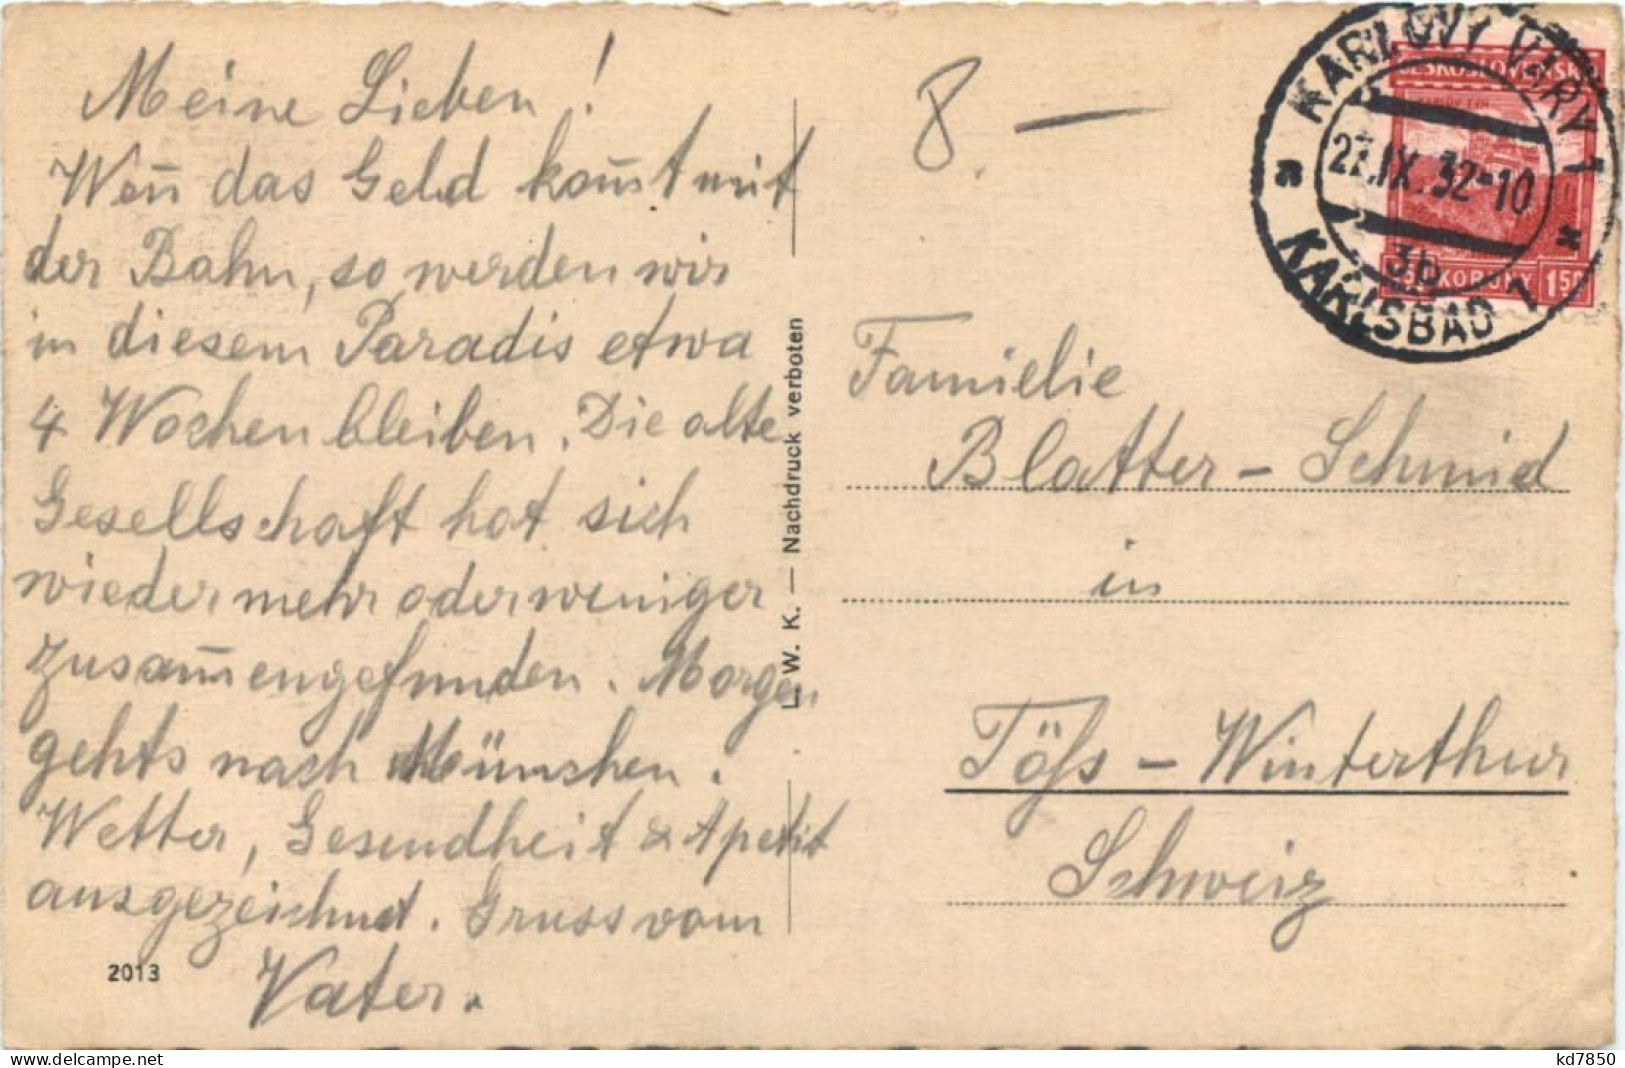 Meine Lieben!
Weñ das Geld kom̃t mit
der Bahn, so werden wir
in diesem Paradis etwa
4 Wochen bleiben. Die alte
Gesellschaft hat sich
wieder mehr oder weniger
zusam̃engefunden. Morgen
gehts nach München.
Wetter, Gesundheit & Apetit
ausgezeichnet. Gruss vom
Vater.
2013
L. W. K. — Nachdruck verboten
8. —
KARLOVY VARY 1
27.IX.32-10
3b
KARLSBAD 1
ČESKOSLOVENSKO
KORUNY 1.50
Familie
Blatter - Schmid
in
Töss - Winterthur
Schweiz
delcampe.net
kd7850